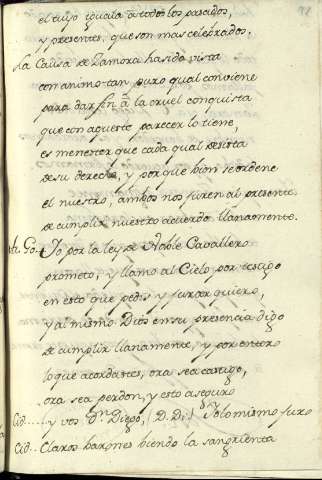 el tuyo iguala a todos los pasados,
y presentes, que son mas celebrados.
La Causa de Zamora ha sido vista
con animo tan puro qual conviene
para dar fin á la cruel conquista
que con aquesto parecer lo tiene,
es menester que cada qual desista
de su derecho, y por que bien se ordene
el nuestro, ambos nos juren al presente
de cumplir nuestro acuerdo llanamente.
Go. Yo por la ley de Noble Cavallero
prometo, y llamo al Cielo por testigo
en esto que pedis y jurar quiero,
y al mismo Dios en su presencia digo
de cumplir llanamente, y por entero
lo que acordastes, ora sea castigo,
ora sea perdon, y esto aseguro
Cid..... y vos Dn Diego, (D. D.) Yo lo mismo juro
Cid.. Claros barones biendo la sangrienta